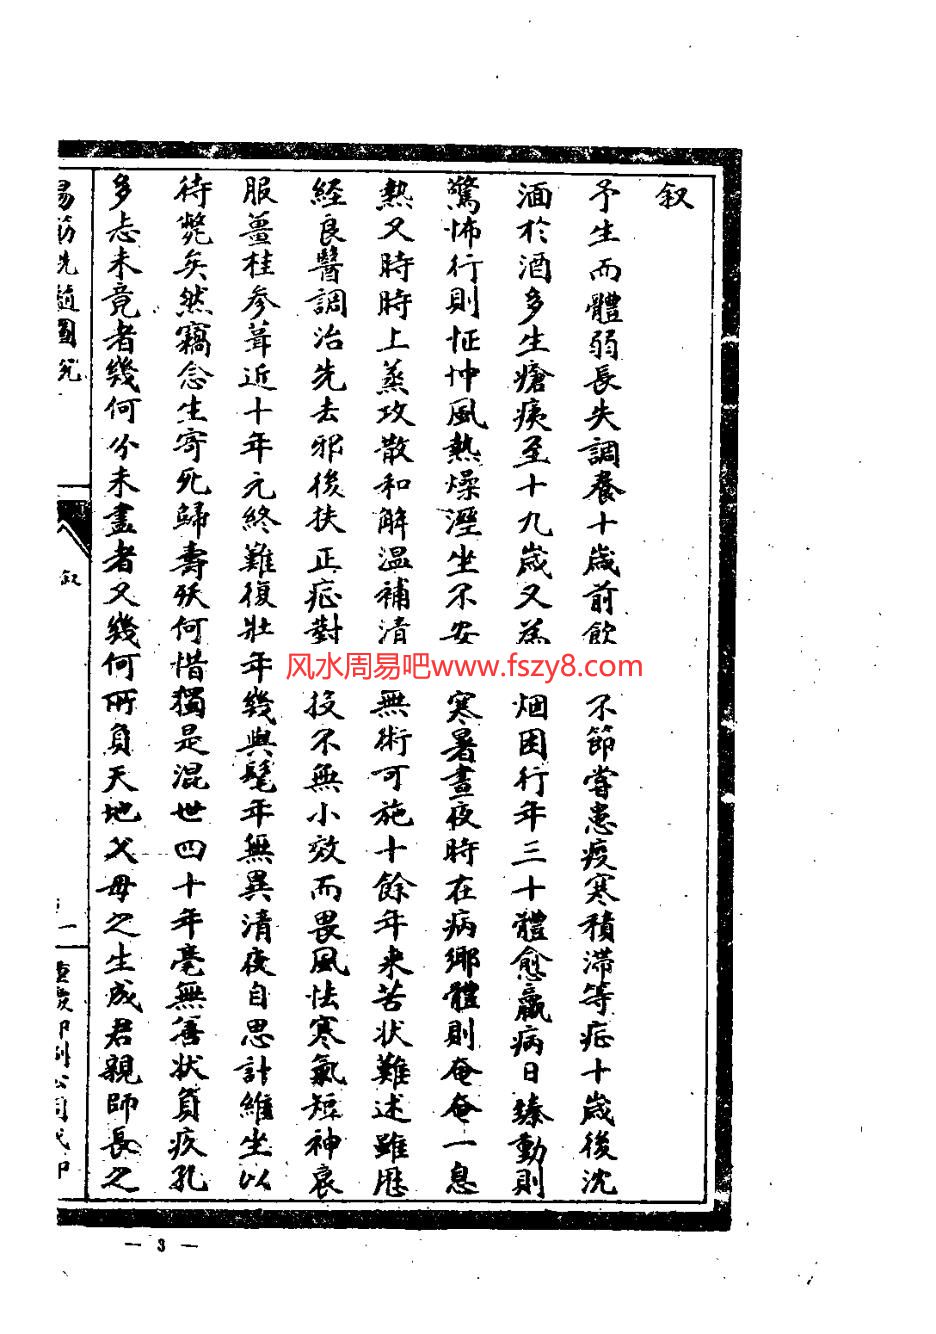 叙
予生而體弱長失調養十歲前飲不節嘗患疫寒積滞等症十歲後沈
湎於酒多生瘡痍至十九歲又為烟困行年三十體愈羸病日臻動則
驚怖行則怔忡風熱燥溼坐不安寒暑晝夜時在病鄉體則奄奄一息
熱又時時上蒸攻散和解温補清無術可施十餘年来苦状難述雖歴
経良醫調治先去邪後扶正症對投不無小效而畏風怯寒氣短神衰
服薑桂參茸近十年元終難復壯年幾與髦年無異清夜自思計維坐以
待斃矣然竊念生寄死歸壽殀何惜獨是混世四十年毫無善状負疚孔
多忐未竟者幾何分未盡者又幾何所負天地父母之生成君親師長之
易筋洗髓圖說
叙
一
重慶印刷公司代印
風水周易吧www.fszy8.com
— 3 —